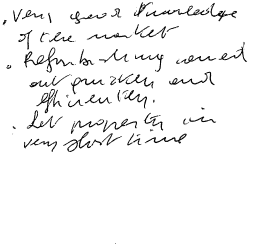 . Very good knowledge
of the market
. Refurbishing carried
out quickly and
efficiently.
. Let property in
very short time